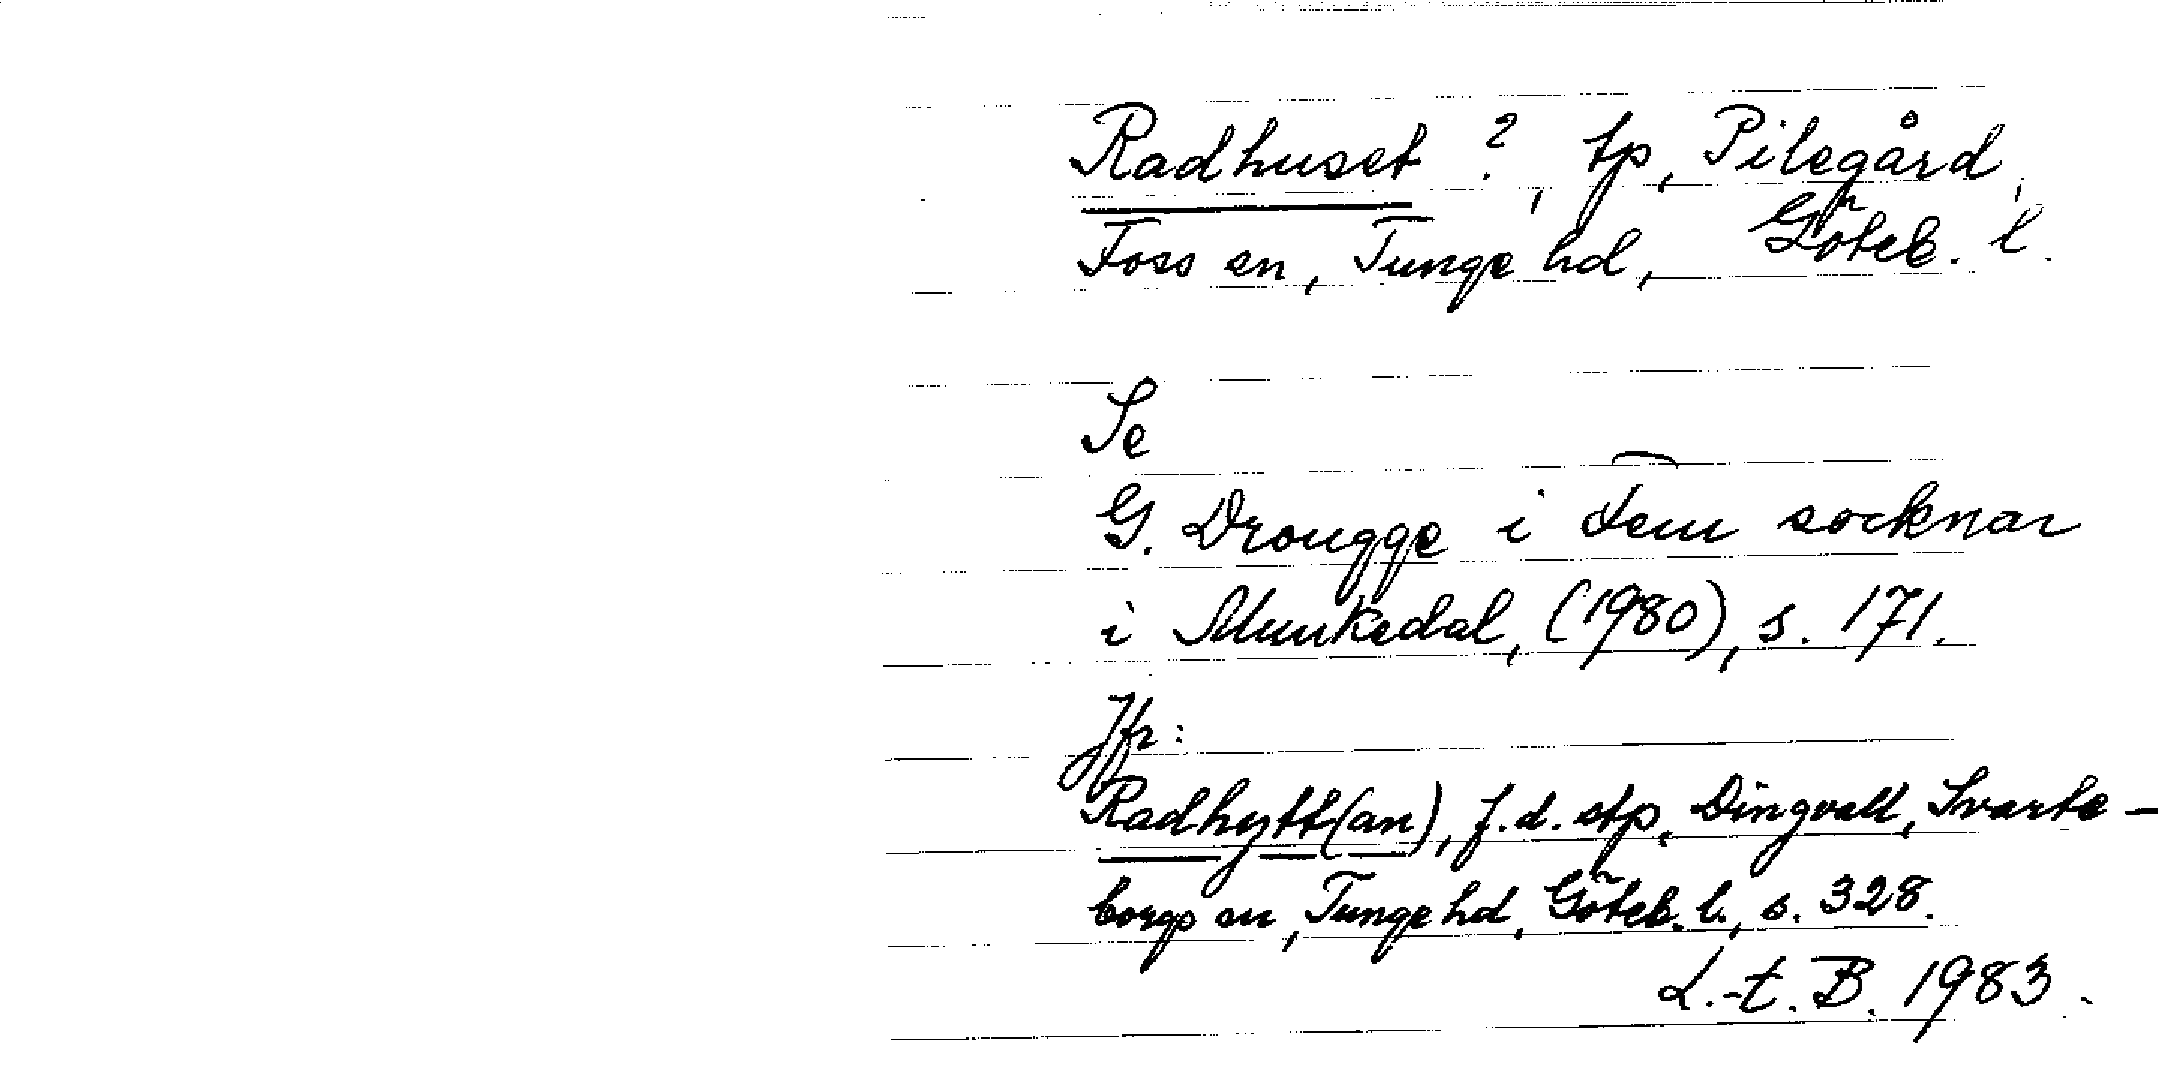 Radhuset ?, tp, Pilegård,
Foss sn, Tunge hd, Göteb. l.
Se
G. Drougge i Fem socknar
i Munkedal, (1980), s. 171.
Jfr:
Radhytt(an), f.d. stp, Dingvall, Svarte-
borgs sn, Tunge hd, Göteb. l., s. 328.
L.-t. B. 1983.